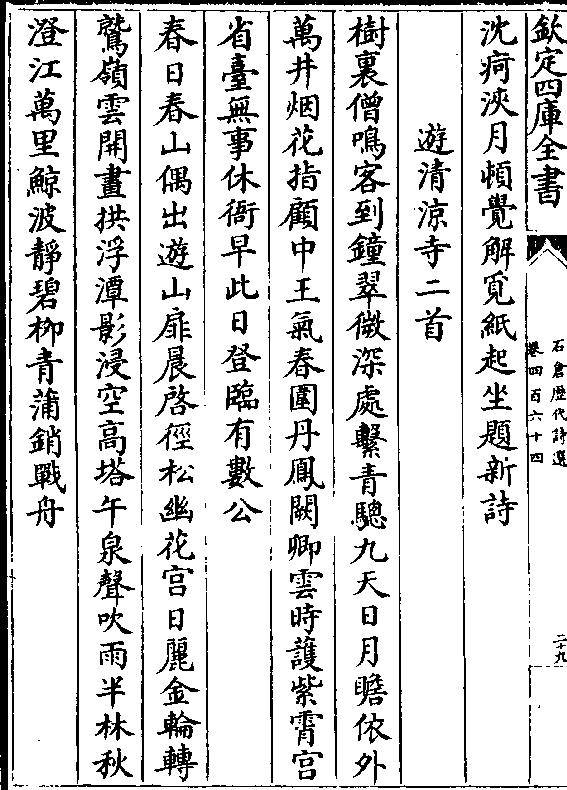 欽定四庫全書
石倉歷代詩選
卷四百六十四
二十九
沈疴浹月頓覺解覓紙起坐題新詩
遊清涼寺二首
樹裏僧鳴客到鐘翠微深處繫青驄九天日月瞻依外
萬井烟花指顧中王氣春圍丹鳳闕卿雲時護紫霄宮
省臺無事休衙早此日登臨有數公
春日春山偶出遊山扉晨啓徑松幽花宮日麗金輪轉
鷲嶺雲開畫拱浮潭影浸空高塔午泉聲吹雨半林秋
澄江萬里鯨波靜碧柳青蒲銷戰舟